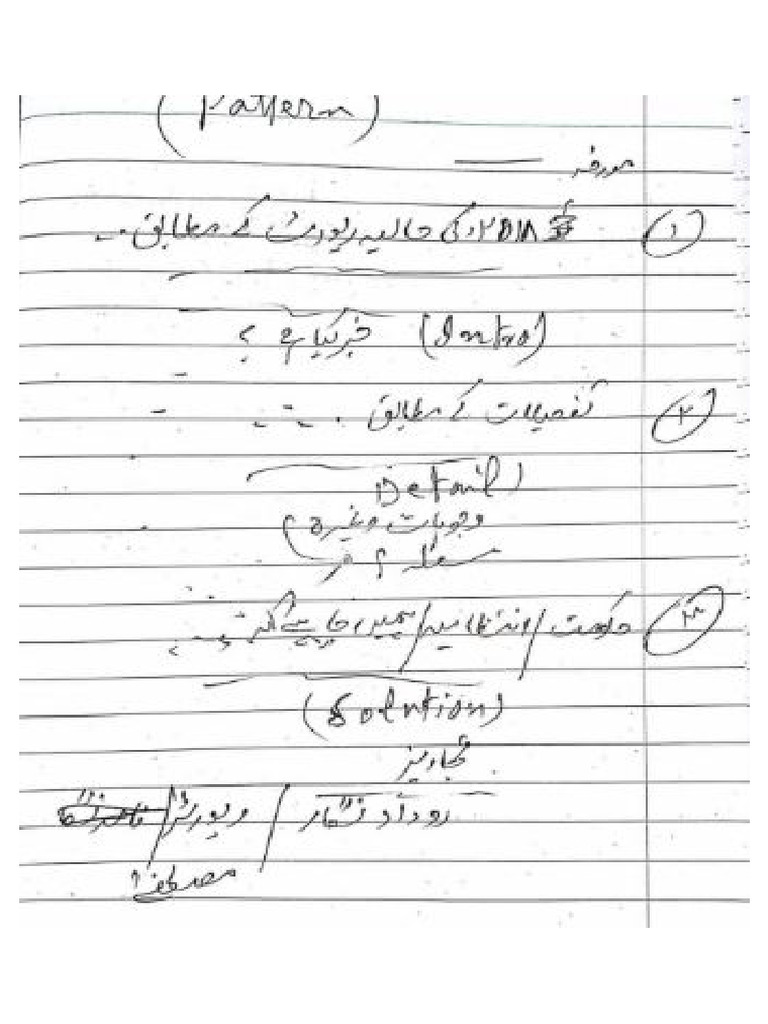 (Pattern)
مورخہ ـــــ
① ۲۰۱۸ء کی حالیہ رپورٹ کے مطابق ۔۔
(Intro) خبر کیا ہے؟
② تفصیلات کے مطابق ۔ ۔ ۔ ۔
Detail
وجوہات وغیرہ
مسئلہ؟
③ حکومت / انتظامیہ / ہمیں چاہیے کہ ۔ ۔ ۔
(Solution)
تجاویز
روداد نگار / رپورٹر /
مصطفیٰ